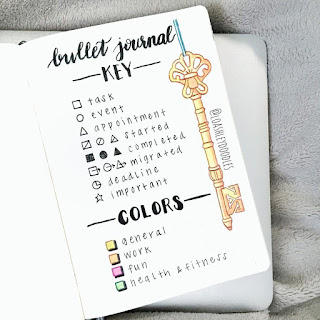 bullet journal
KEY
task
event
appointment
started
completed
migrated
deadline
important
COLORS
general
work
fun
health & fitness